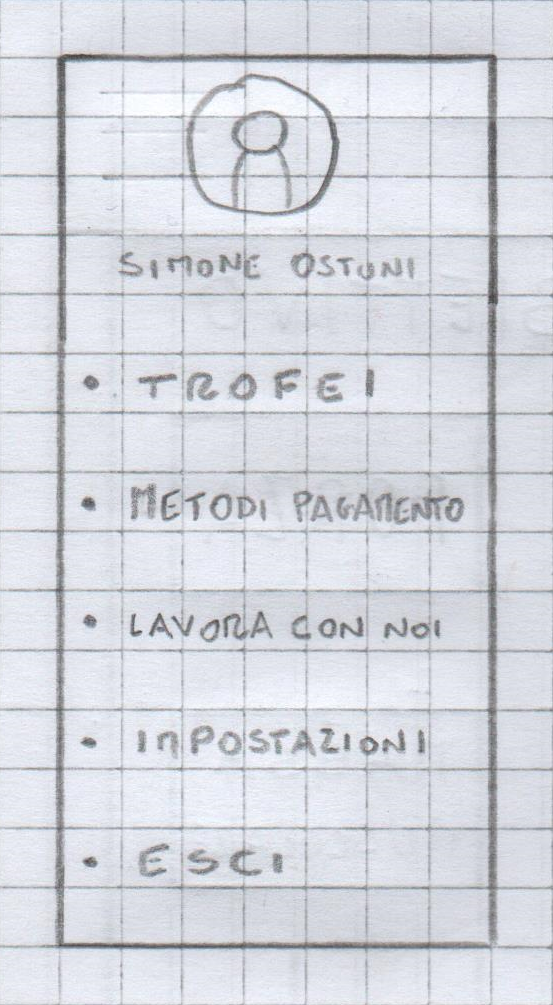 SIMONE OSTUNI
• TROFEI
• METODI PAGAMENTO
• LAVORA CON NOI
• IMPOSTAZIONI
• ESCI